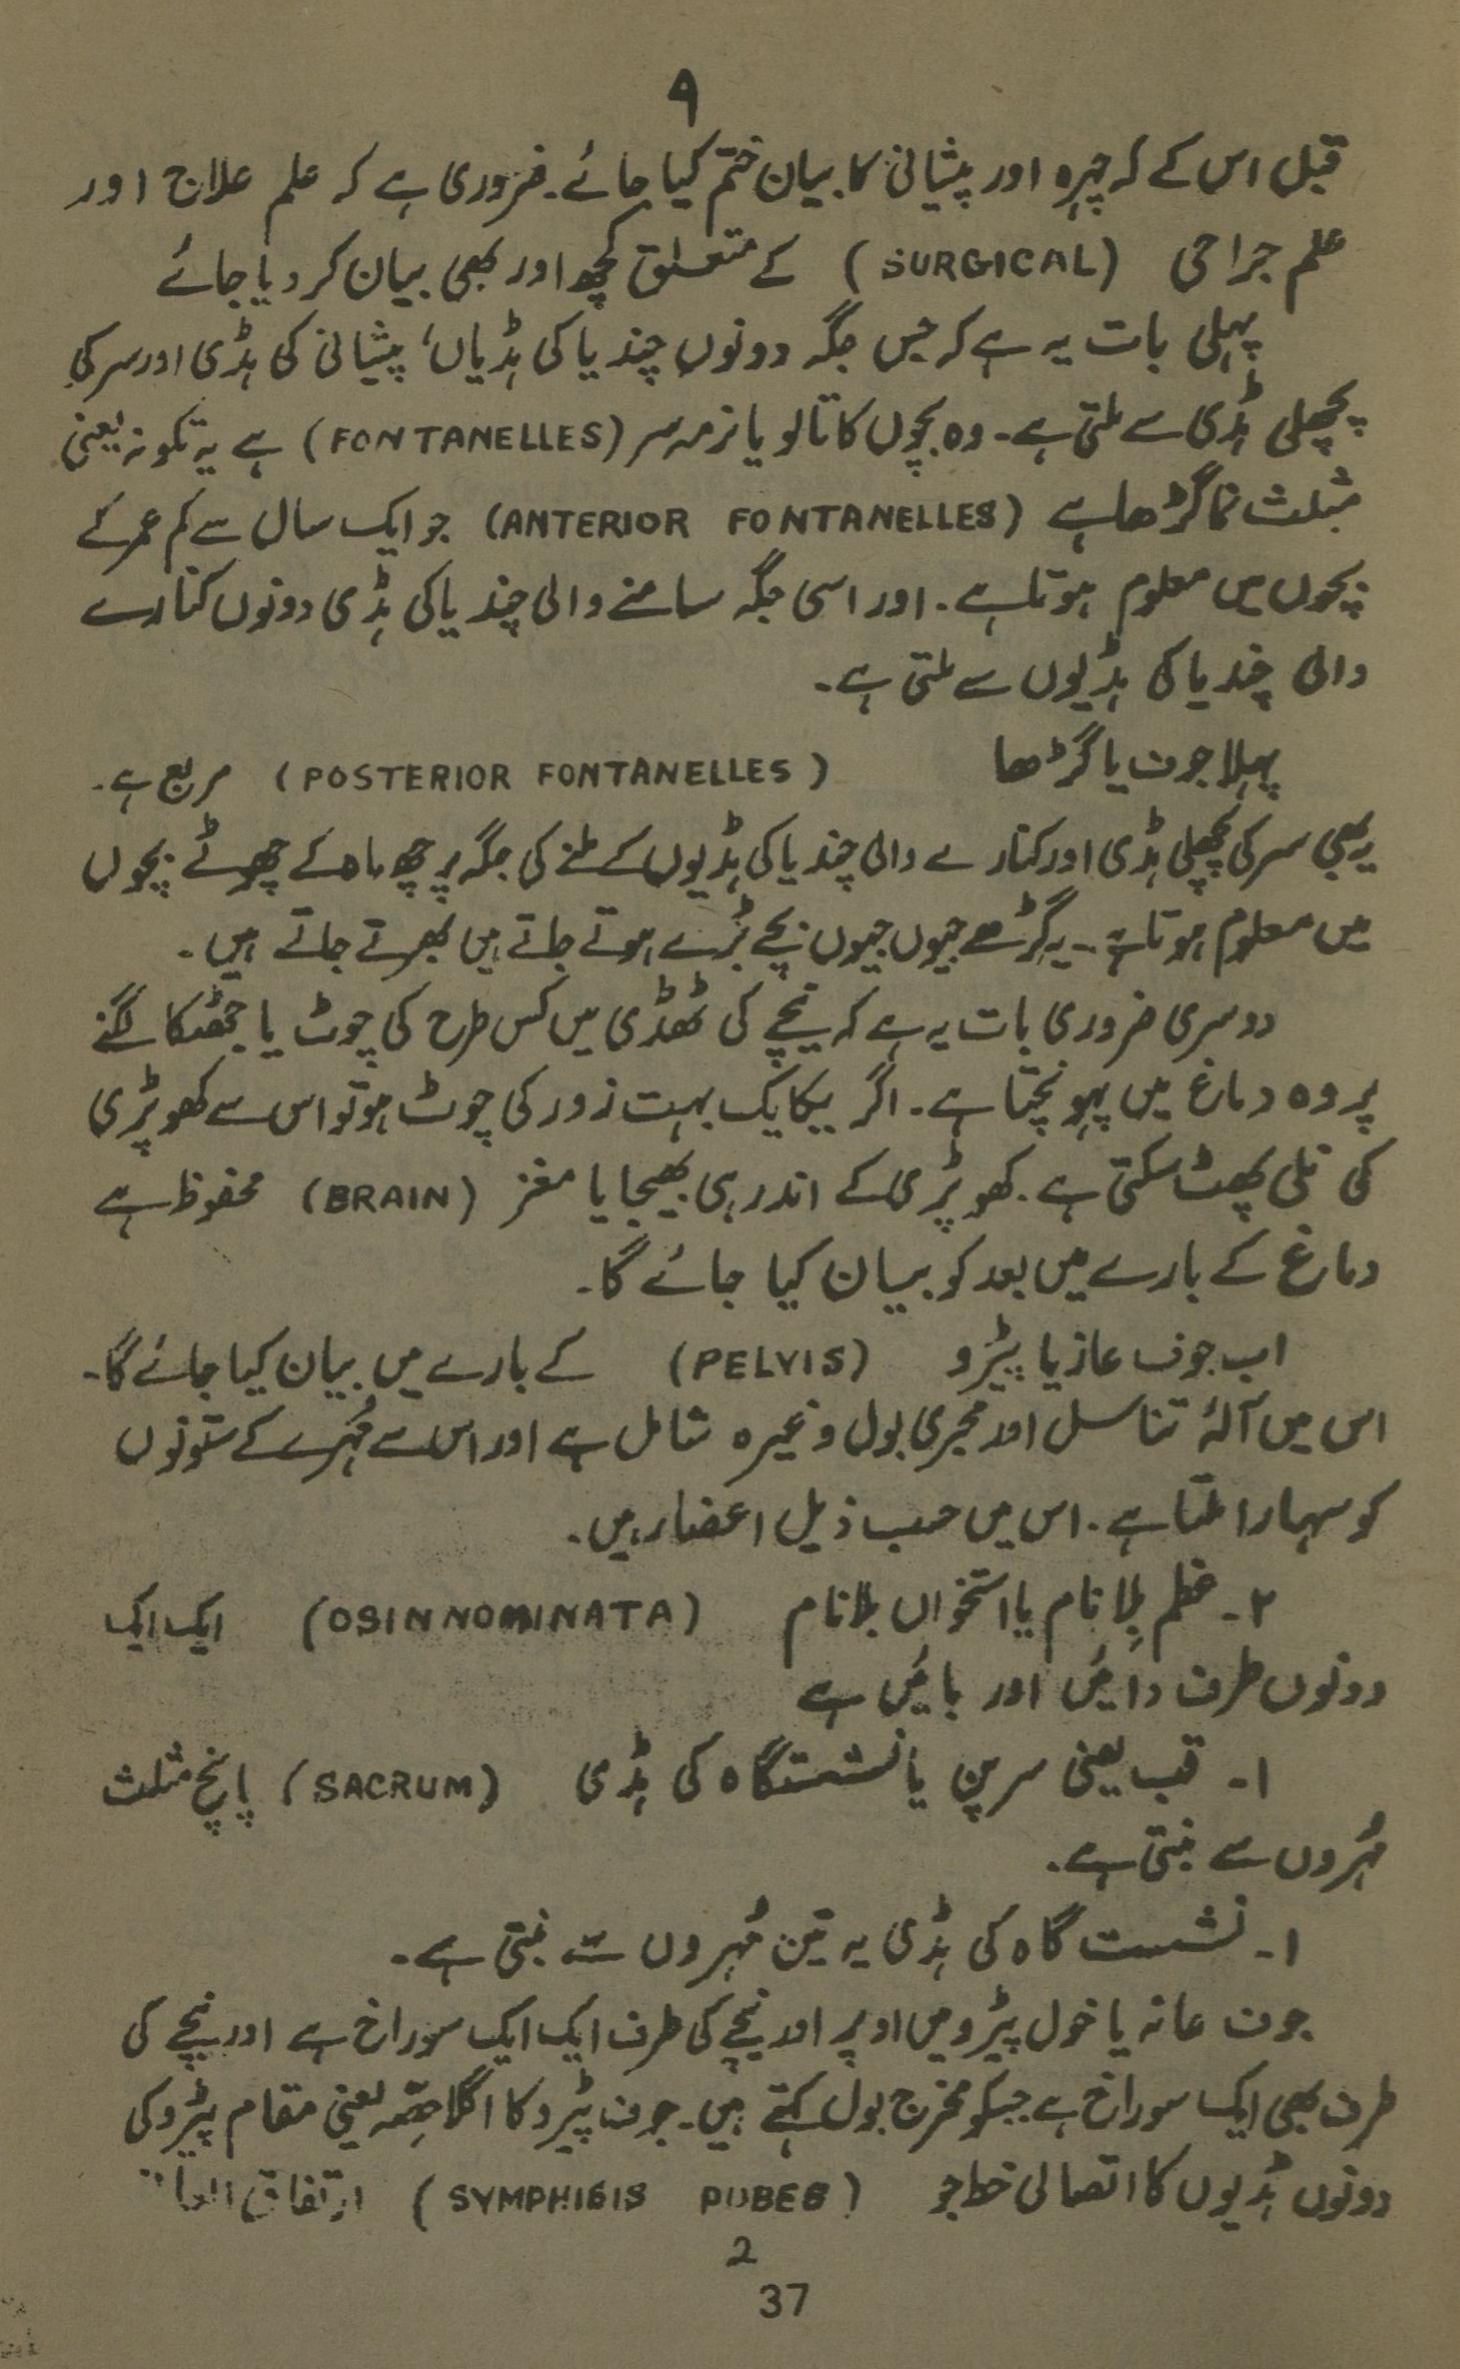 ۹
قبل اس کے کہ چہرہ اور پیشانی کا بیان ختم کیا جائے۔ ضروری ہے کہ علم علاج اور
علم جراحی (SURGICAL) کے متعلق کچھ اور بھی بیان کر دیا جائے
پہلی بات یہ ہے کہ جس جگہ دونوں چندیا کی ہڈیاں، پیشانی کی ہڈی اور سر کی
پچھلی ہڈی سے ملتی ہے۔ وہ بچوں کا تالو یا نرمہ سر (FONTANELLES) ہے یہ تکونہ یعنی
مثلث نما گڑھا ہے (ANTERIOR FONTANELLES) جو ایک سال سے کم عمر کے
بچوں میں معلوم ہوتا ہے۔ اور اسی جگہ سامنے والی چندیا کی ہڈی دونوں کنارے
والی چندیا کی ہڈیوں سے ملتی ہے۔
پہلا جوف یا گڑھا (POSTERIOR FONTANELLES) مربع ہے۔
یہ بھی سر کی پچھلی ہڈی اور کنارے والی چندیا کی ہڈیوں کے ملنے کی جگہ پر چھ ماہ کے چھوٹے بچوں
میں معلوم ہوتا ہے۔ یہ گڑھے جیوں جیوں بچے بڑے ہوتے جاتے ہیں بھرتے جاتے ہیں۔
دوسری ضروری بات یہ ہے کہ نیچے کی ٹھڈی میں کس طرح کی چوٹ یا جھٹکا لگنے
پر وہ دماغ میں پہونچتا ہے۔ اگر یکایک بہت زور کی چوٹ ہو تو اس سے کھوپڑی
کی تلی پھٹ سکتی ہے۔ کھوپڑی کے اندر ہی بھیجا یا مغز (BRAIN) محفوظ ہے
دماغ کے بارے میں بعد کو بیان کیا جائے گا۔
اب جوف عاز یا پیڑو (PELVIS) کے بارے میں بیان کیا جائے گا۔
اس میں آلۂ تناسل اور مجری بول وغیرہ شامل ہے اور اس سے مُہرے کے ستونوں
کو سہارا ملتا ہے۔ اس میں حسب ذیل اعضاء ہیں۔
۲۔ عظم بِلا نام یا استخواں بلا نام (OSINNOMINATA) ایک ایک
دونوں طرف دائیں اور بائیں ہے
۱۔ قب یعنی سرین یا نشستگاہ کی ہڈی (SACRUM) پانچ مثلث
مُہروں سے بنتی ہے۔
۱۔ نشست گاہ کی ہڈی یہ تین مُہروں سے بنتی ہے۔
جوف عانہ یا خول پیڑو میں اوپر اور نیچے کی طرف ایک ایک سوراخ ہے اور نیچے کی
طرف بھی ایک سوراخ ہے جسکو مخرج بول کہتے ہیں۔ جوف پیڑو کا اگلا حصّہ یعنی مقام پیڑو کی
دونوں ہڈیوں کا اتصالی خط جو (SYMPHISIS PUBES) ارتفاق
2
37